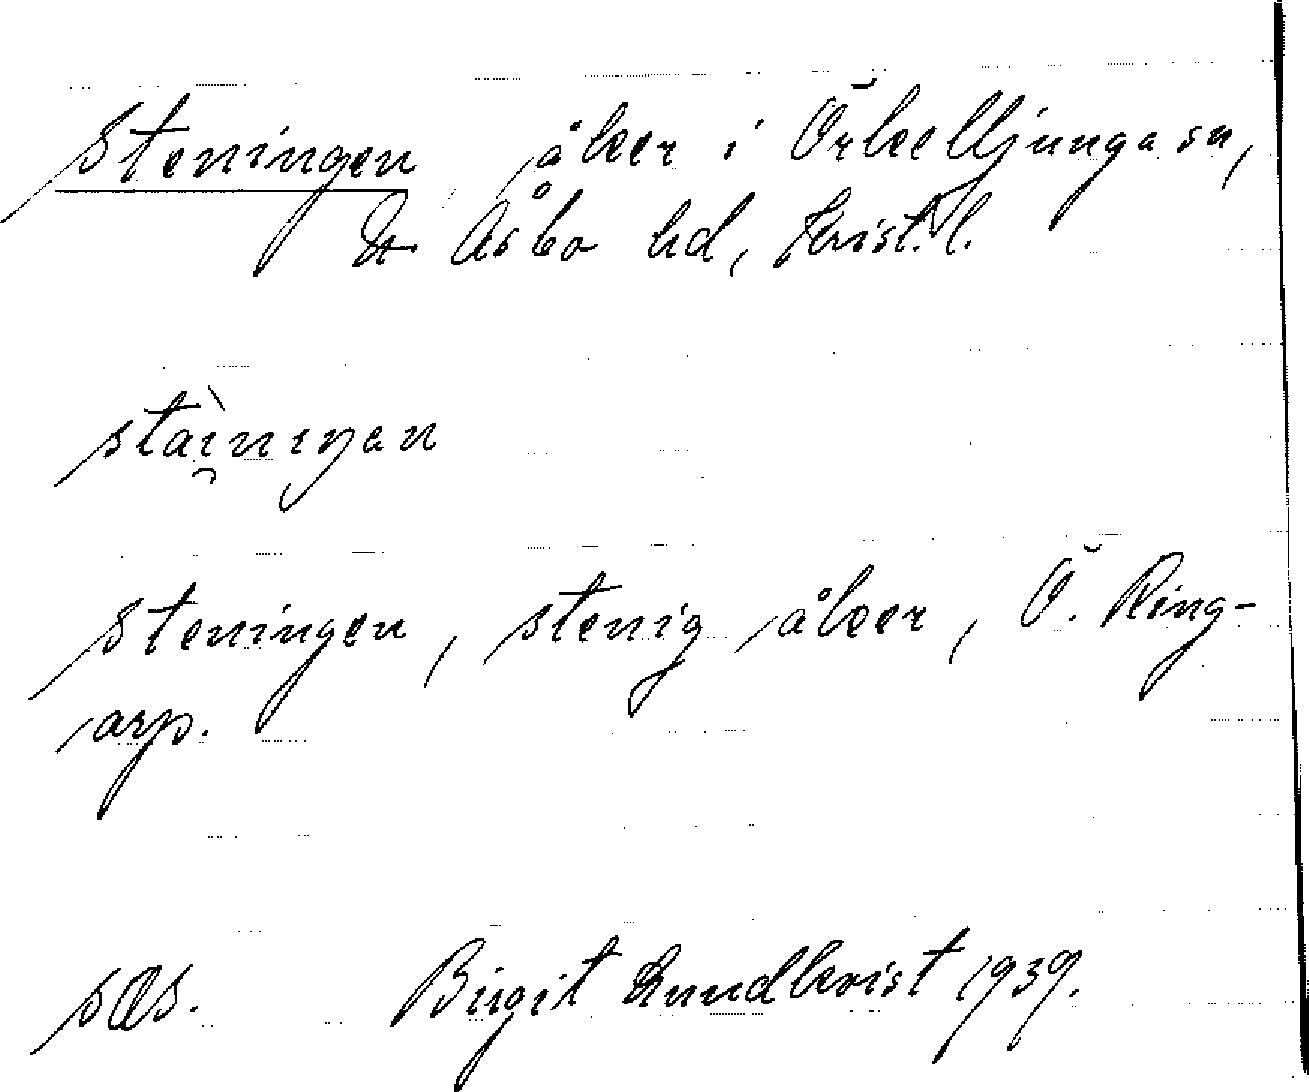 Steningen åker i Örkelljunga sn,
N Åsbo hd, Krist. l.
stài̯nıŋan
Steningen, stenig åker, Ö. Ring-
arp.
sås. Birgit Lundkvist 1939.